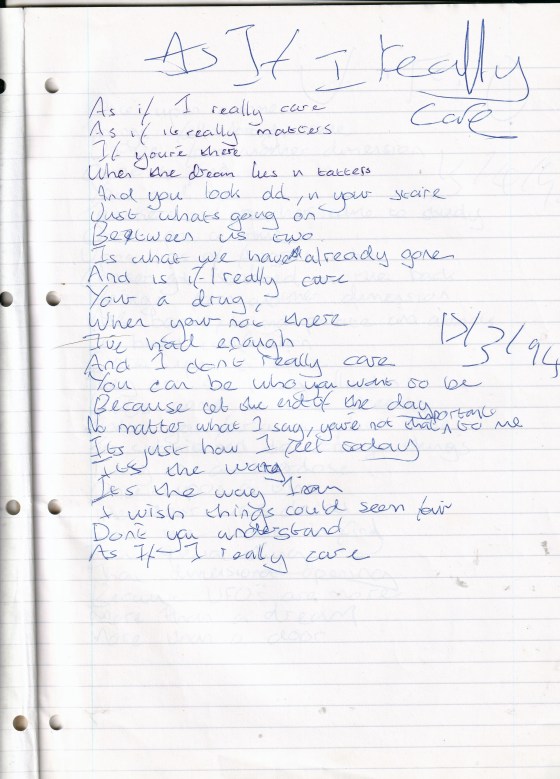 As If I Really
Care
As if I really care
As if it really matters
If you're there
When the dream lies n tatters
And you look dd, n your staire
Just whats going on
Between us two
Is what we have already gone
And is if I really care
Your a drug,
When your not there
I've had enough
And I don't really care
You can be who you want to be
Because at the end of the day
No matter what I say, you're not that importante to me
Its just how I feel today
It's the way
It's the way I am
I wish things could seem fair
Don't you understand
As If I really care
12/3/94